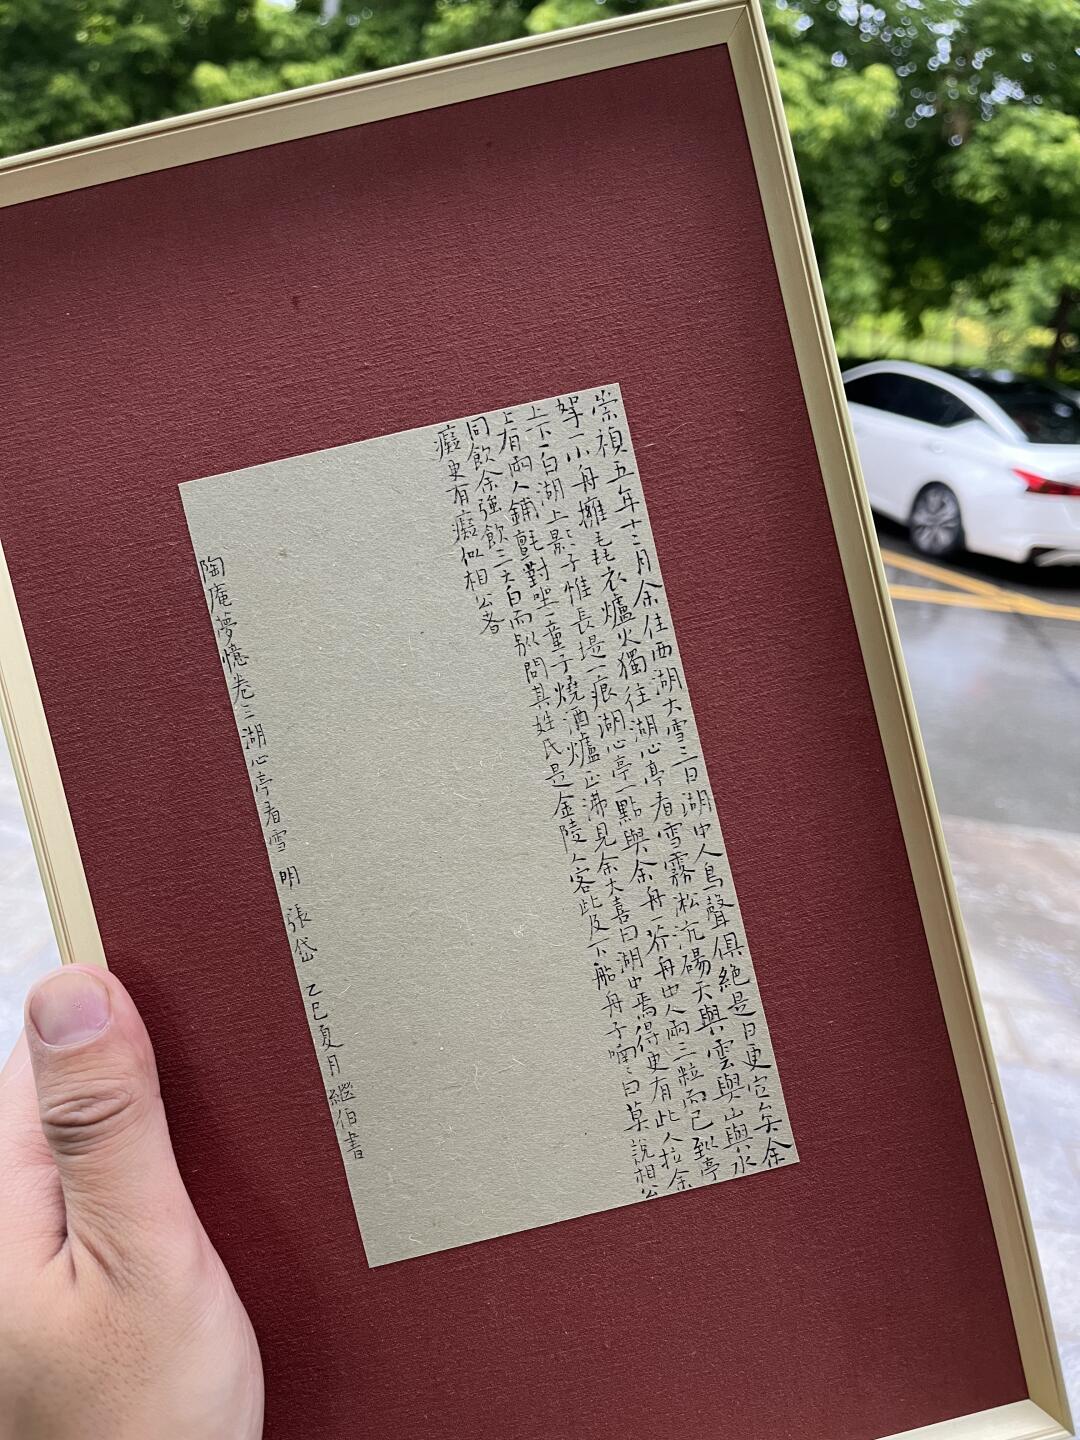 崇禎五年十二月余住西湖大雪三日湖中人鳥聲俱絕是日更定矣余
拏一小舟擁毳衣爐火獨往湖心亭看雪霧淞沆碭天與雲與山與水
上下一白湖上影子惟長堤一痕湖心亭一點與余舟一芥舟中人兩三粒而已到亭
上有兩人鋪氈對坐一童子燒酒爐正沸見余大喜曰湖中焉得更有此人拉余
同飲余強飲三大白而別問其姓氏是金陵人客此及下船舟子喃〻曰莫說相公
癡更有癡似相公者
陶庵夢憶卷三湖心亭看雪 明 張岱 乙巳夏月 繼伯書